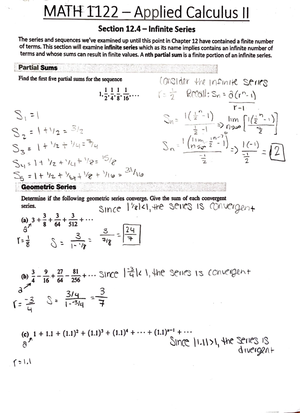 MATH 1122 – Applied Calculus II
Section 12.4 – Infinite Series
The series and sequences we've examined up until this point in Chapter 12 have contained a finite number
of terms. This section will examine infinite series which as its name implies contains an infinite number of
terms and whose sums can result in finite values. A nth partial sum is a finite portion of an infinite series.
Partial Sums
Find the first five partial sums for the sequence
consider the infinite series
1, 1/2, 1/4, 1/8, 1/16, ...
r = 1/2 Recall: Sn = a(r^n-1)/r-1
S1 = 1
S2 = 1 + 1/2 = 3/2
S3 = 1 + 1/2 + 1/4 =
S4 = 1 + 1/2 + 1/4 + 1/8 = 15/8
Geometric Series
Determine if the following geometric series converge. Give the sum of each convergent
series.
Since the series is convergent
(a) 3 + 3/8 + 3/64 + 3/512 + ···
S = 3/1-1/8 = 3/7/8 = 24/7
(b) 3/4 - 9/16 + 27/64 - 81/256 + ··· Since the series is convergent
r = -3/4 S = 3/4/1--3/4 = 3/7
(c) 1 + 1.1 + (1.1)^2 + (1.1)^3 + (1.1)^4 + ··· + (1.1)^n-1 + ···
Since |1.1|>1, the series is
divergent
r = 1.1